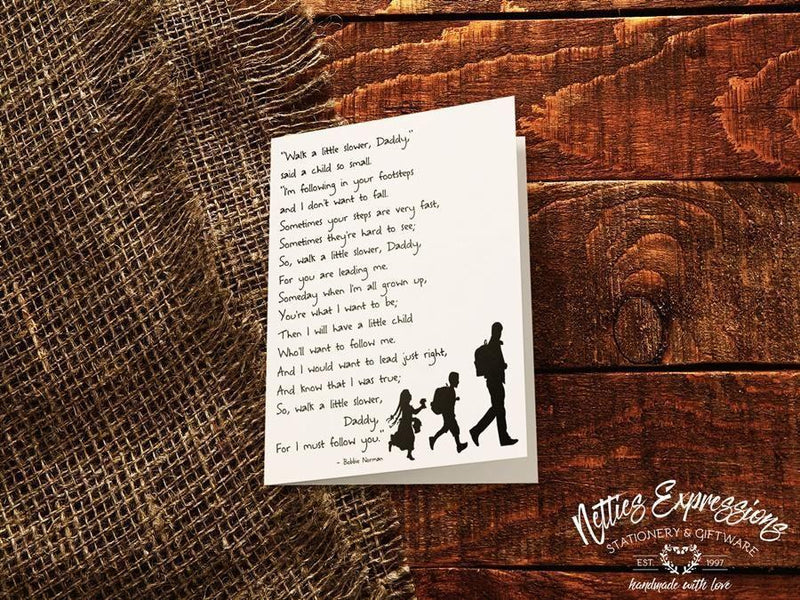 "Walk a little slower, Daddy,"
said a child so small.
"I'm following in your footsteps
and I don't want to fall.
Sometimes your steps are very fast,
Sometimes they're hard to see;
So, walk a little slower, Daddy,
For you are leading me.
Someday when I'm all grown up,
You're what I want to be;
Then I will have a little child
Who'll want to follow me.
And I would want to lead just right,
And know that I was true;
So, walk a little slower,
Daddy,
For I must follow you."
- Bobbie Norman
Netties Expressions
STATIONERY & GIFTWARE
EST. 1997
handmade with love